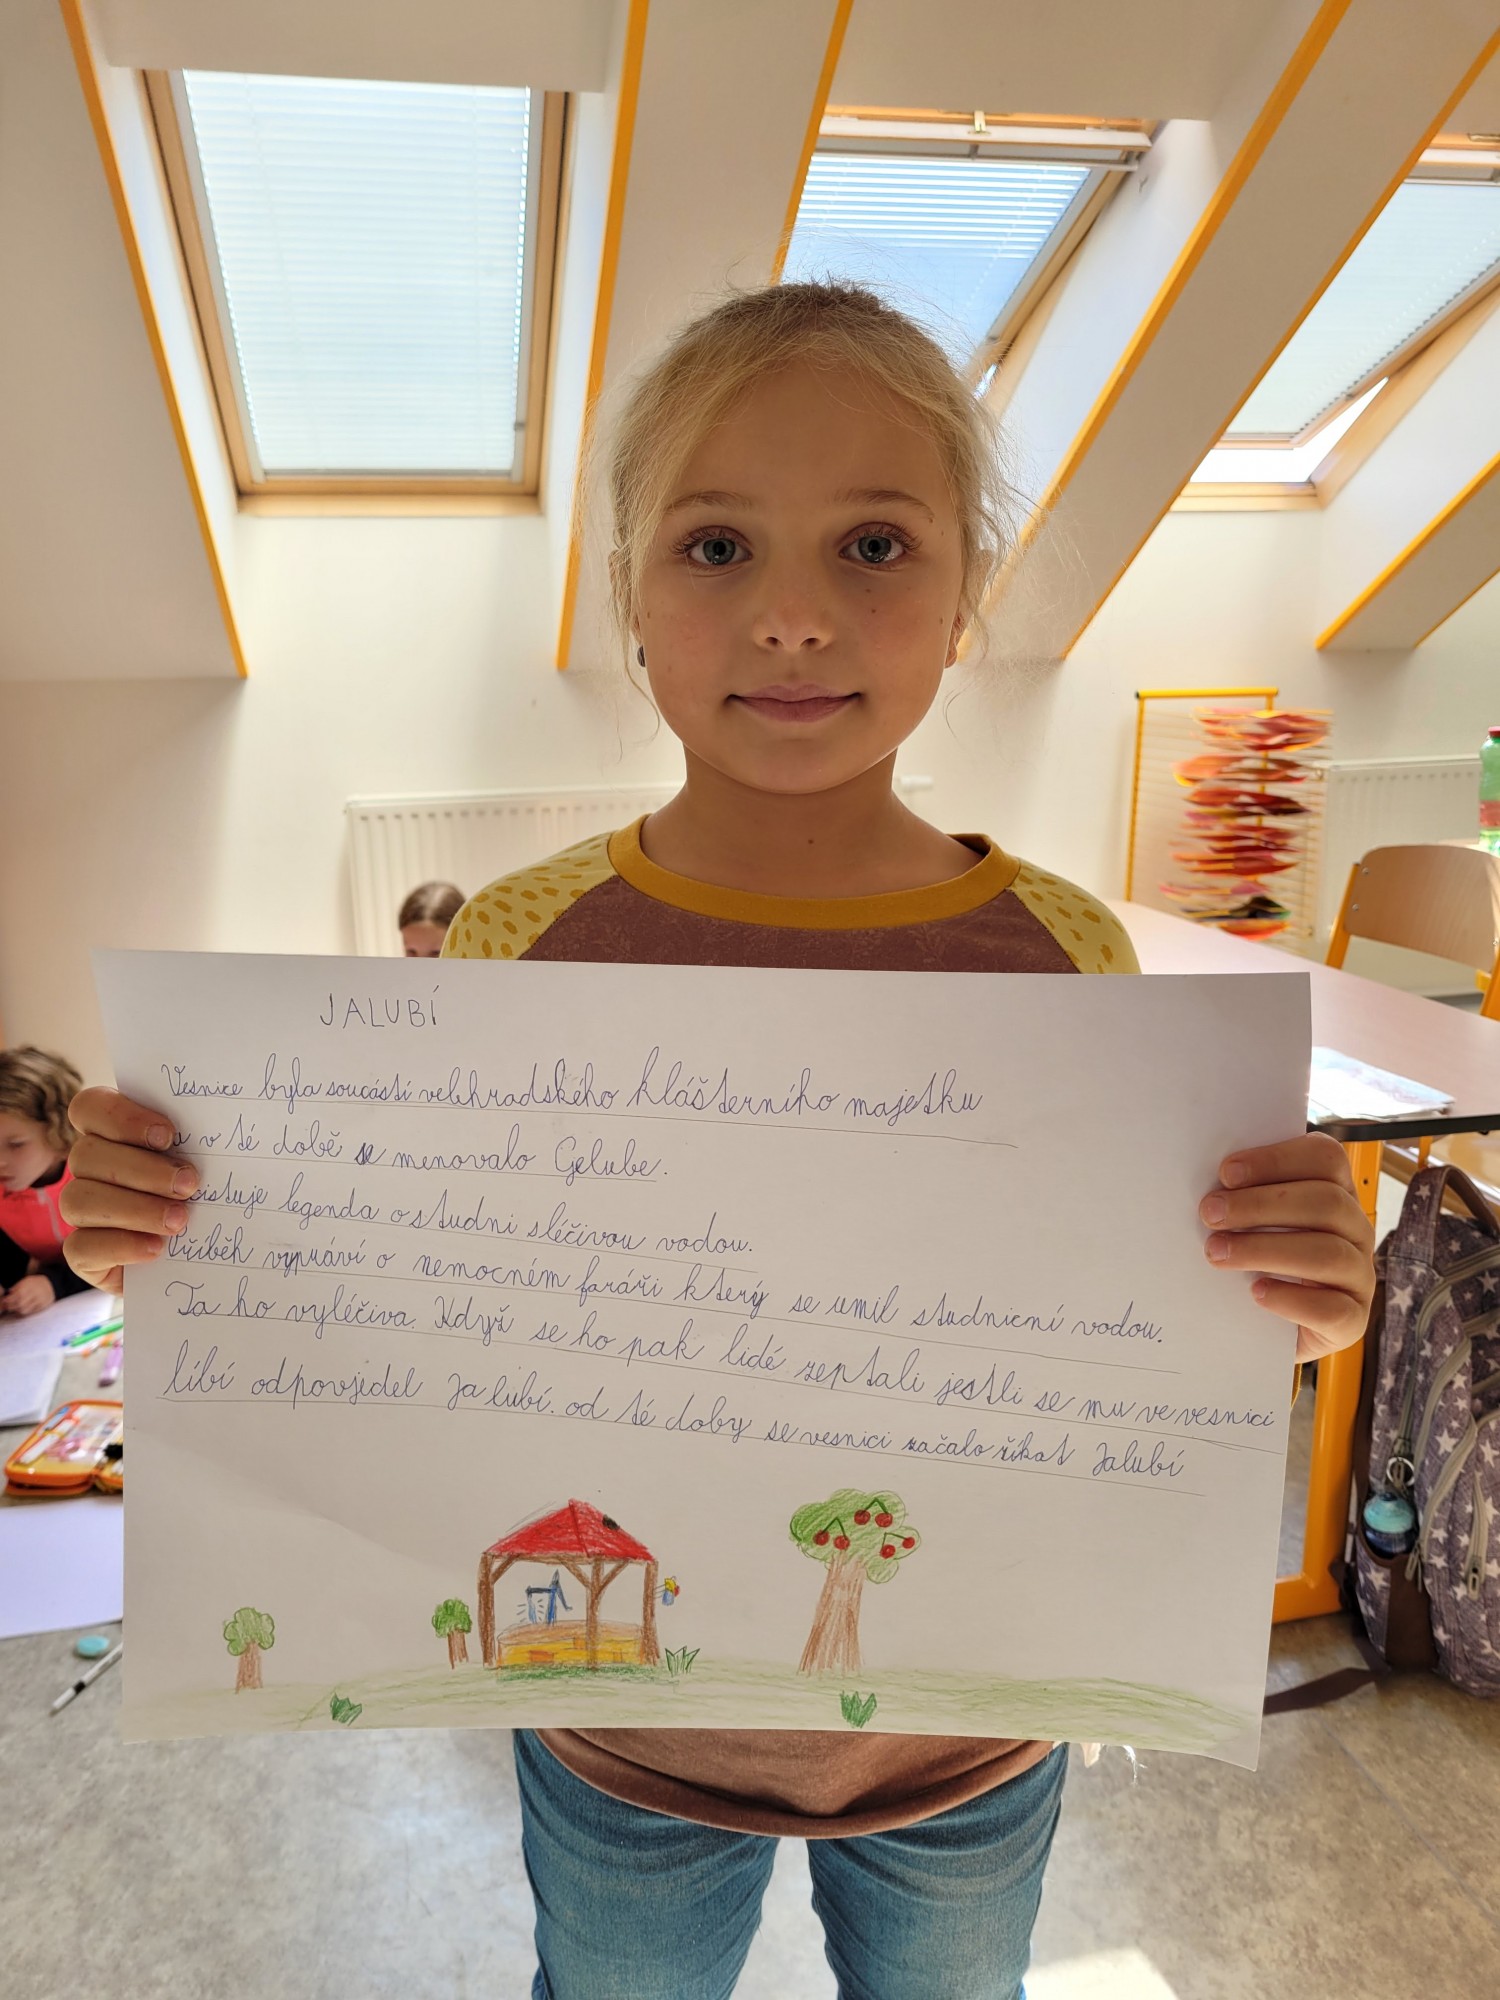 JALUBÍ
Vesnice byla součástí velehradského klášterního majetku
a v té době se menovalo Gelube.
existuje legenda o studni sléčivou vodou.
Příběh vypráví o nemocném faráři který se umil studniční vodou.
Ta ho vyléčiva. Když se ho pak lidé zeptali jestli se mu ve vesnici
líbí odpovjedel Ja lubí. od té doby se vesnici začalo říkat Jalubí